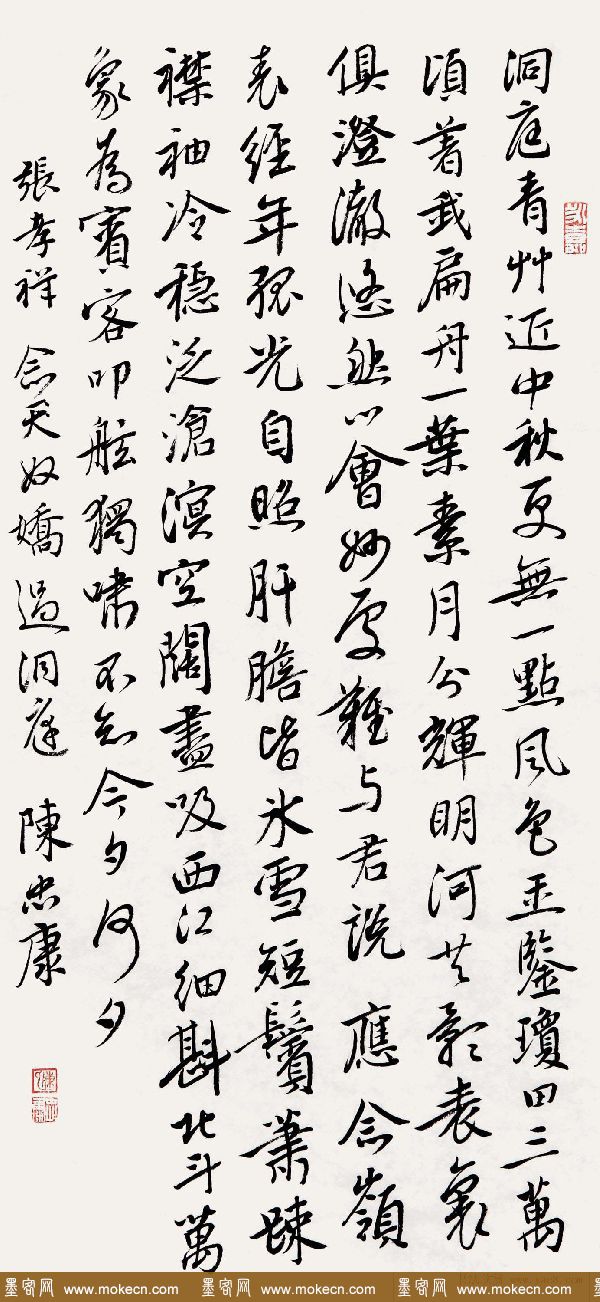 洞庭青艸近中秋更無一點風色玉鑒瓊田三萬
頃着我扁舟一葉素月分輝明河共影表裏
俱澄澈悠然心會妙處難与君說 應念嶺
表經年孤光自照肝膽皆冰雪短鬢蕭踈
襟袖冷穩泛滄溟空闊盡吸西江細斟北斗萬
象為賓客叩舷獨嘯不知今夕何夕
張孝祥 念天奴嬌 過洞庭 陳忠康
墨客网 www.mokecn.com 墨客网 www.mokecn.com 墨客网 www.mokecn.com 墨客网